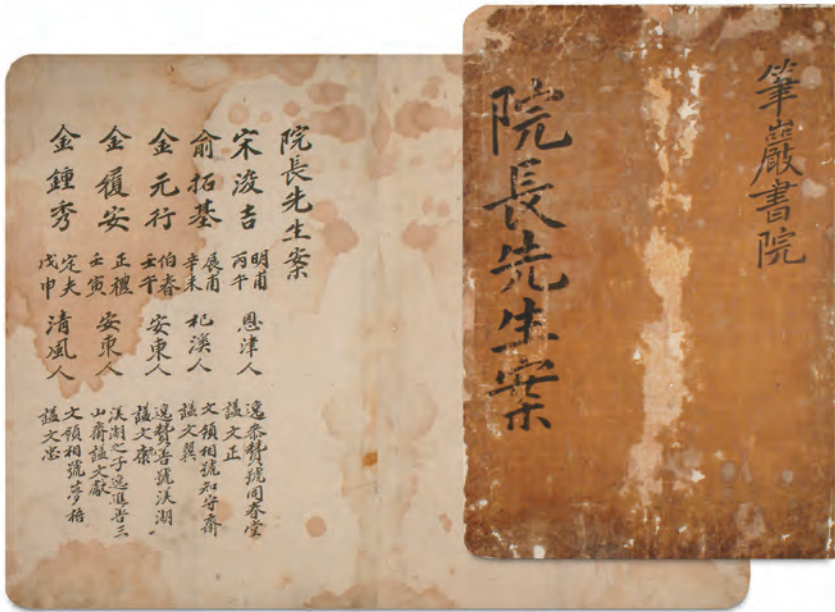 筆巖書院
院長先生案
院長先生案
宋浚吉 明甫 丙午 恩津人 逸參贊號同春堂 諡文正
俞拓基 展甫 辛未 杞溪人 文領相號知守齋 諡文翼
金元行 伯春 壬午 安東人 逸贊善號渼湖 諡文
金履安 正禮 壬寅 安東人 渼湖之子逸進善三 山齋諡文獻
金鍾秀 定夫 戊申 清風人 文領相號夢梧 諡文忠